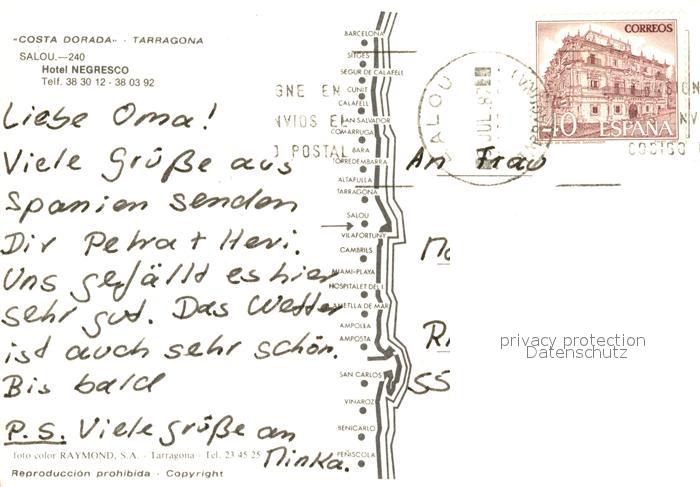 «COSTA DORADA» - TARRAGONA
SALOU.—240
Hotel NEGRESCO
Telf. 38 30 12 - 38 03 92
Liebe Oma!
Viele Grüße aus
Spanien senden
Dir Petra + Heri.
Uns gefällt es hier
sehr gut. Das Wetter
ist auch sehr schön.
Bis bald
P.S. Viele grüße an
Minka.
foto color RAYMOND, S.A. - Tarragona - Tel. 23 45 25
Reproducción prohibida - Copyright
BARCELONA
SITGES
SEGUR DE CALAFELL
CUNIT
CALAFELL
SAN SALVADOR
COMARRUGA
BARA
TORREDEMBARRA
ALTAFULLA
TARRAGONA
SALOU
VILAFORTUNY
CAMBRILS
MIAMI-PLAYA
HOSPITALET DEL I.
AMETLLA DE MAR
AMPOLLA
AMPOSTA
SAN CARLOS
VINAROZ
BENICARLO
PEÑISCOLA
GNE EN
NVIOS EL
POSTAL
SALOU
JUL. 87
TARRAGONA
CORREOS
40 ESPAÑA
CODIGO
An Frau
55
privacy protection
Datenschutz